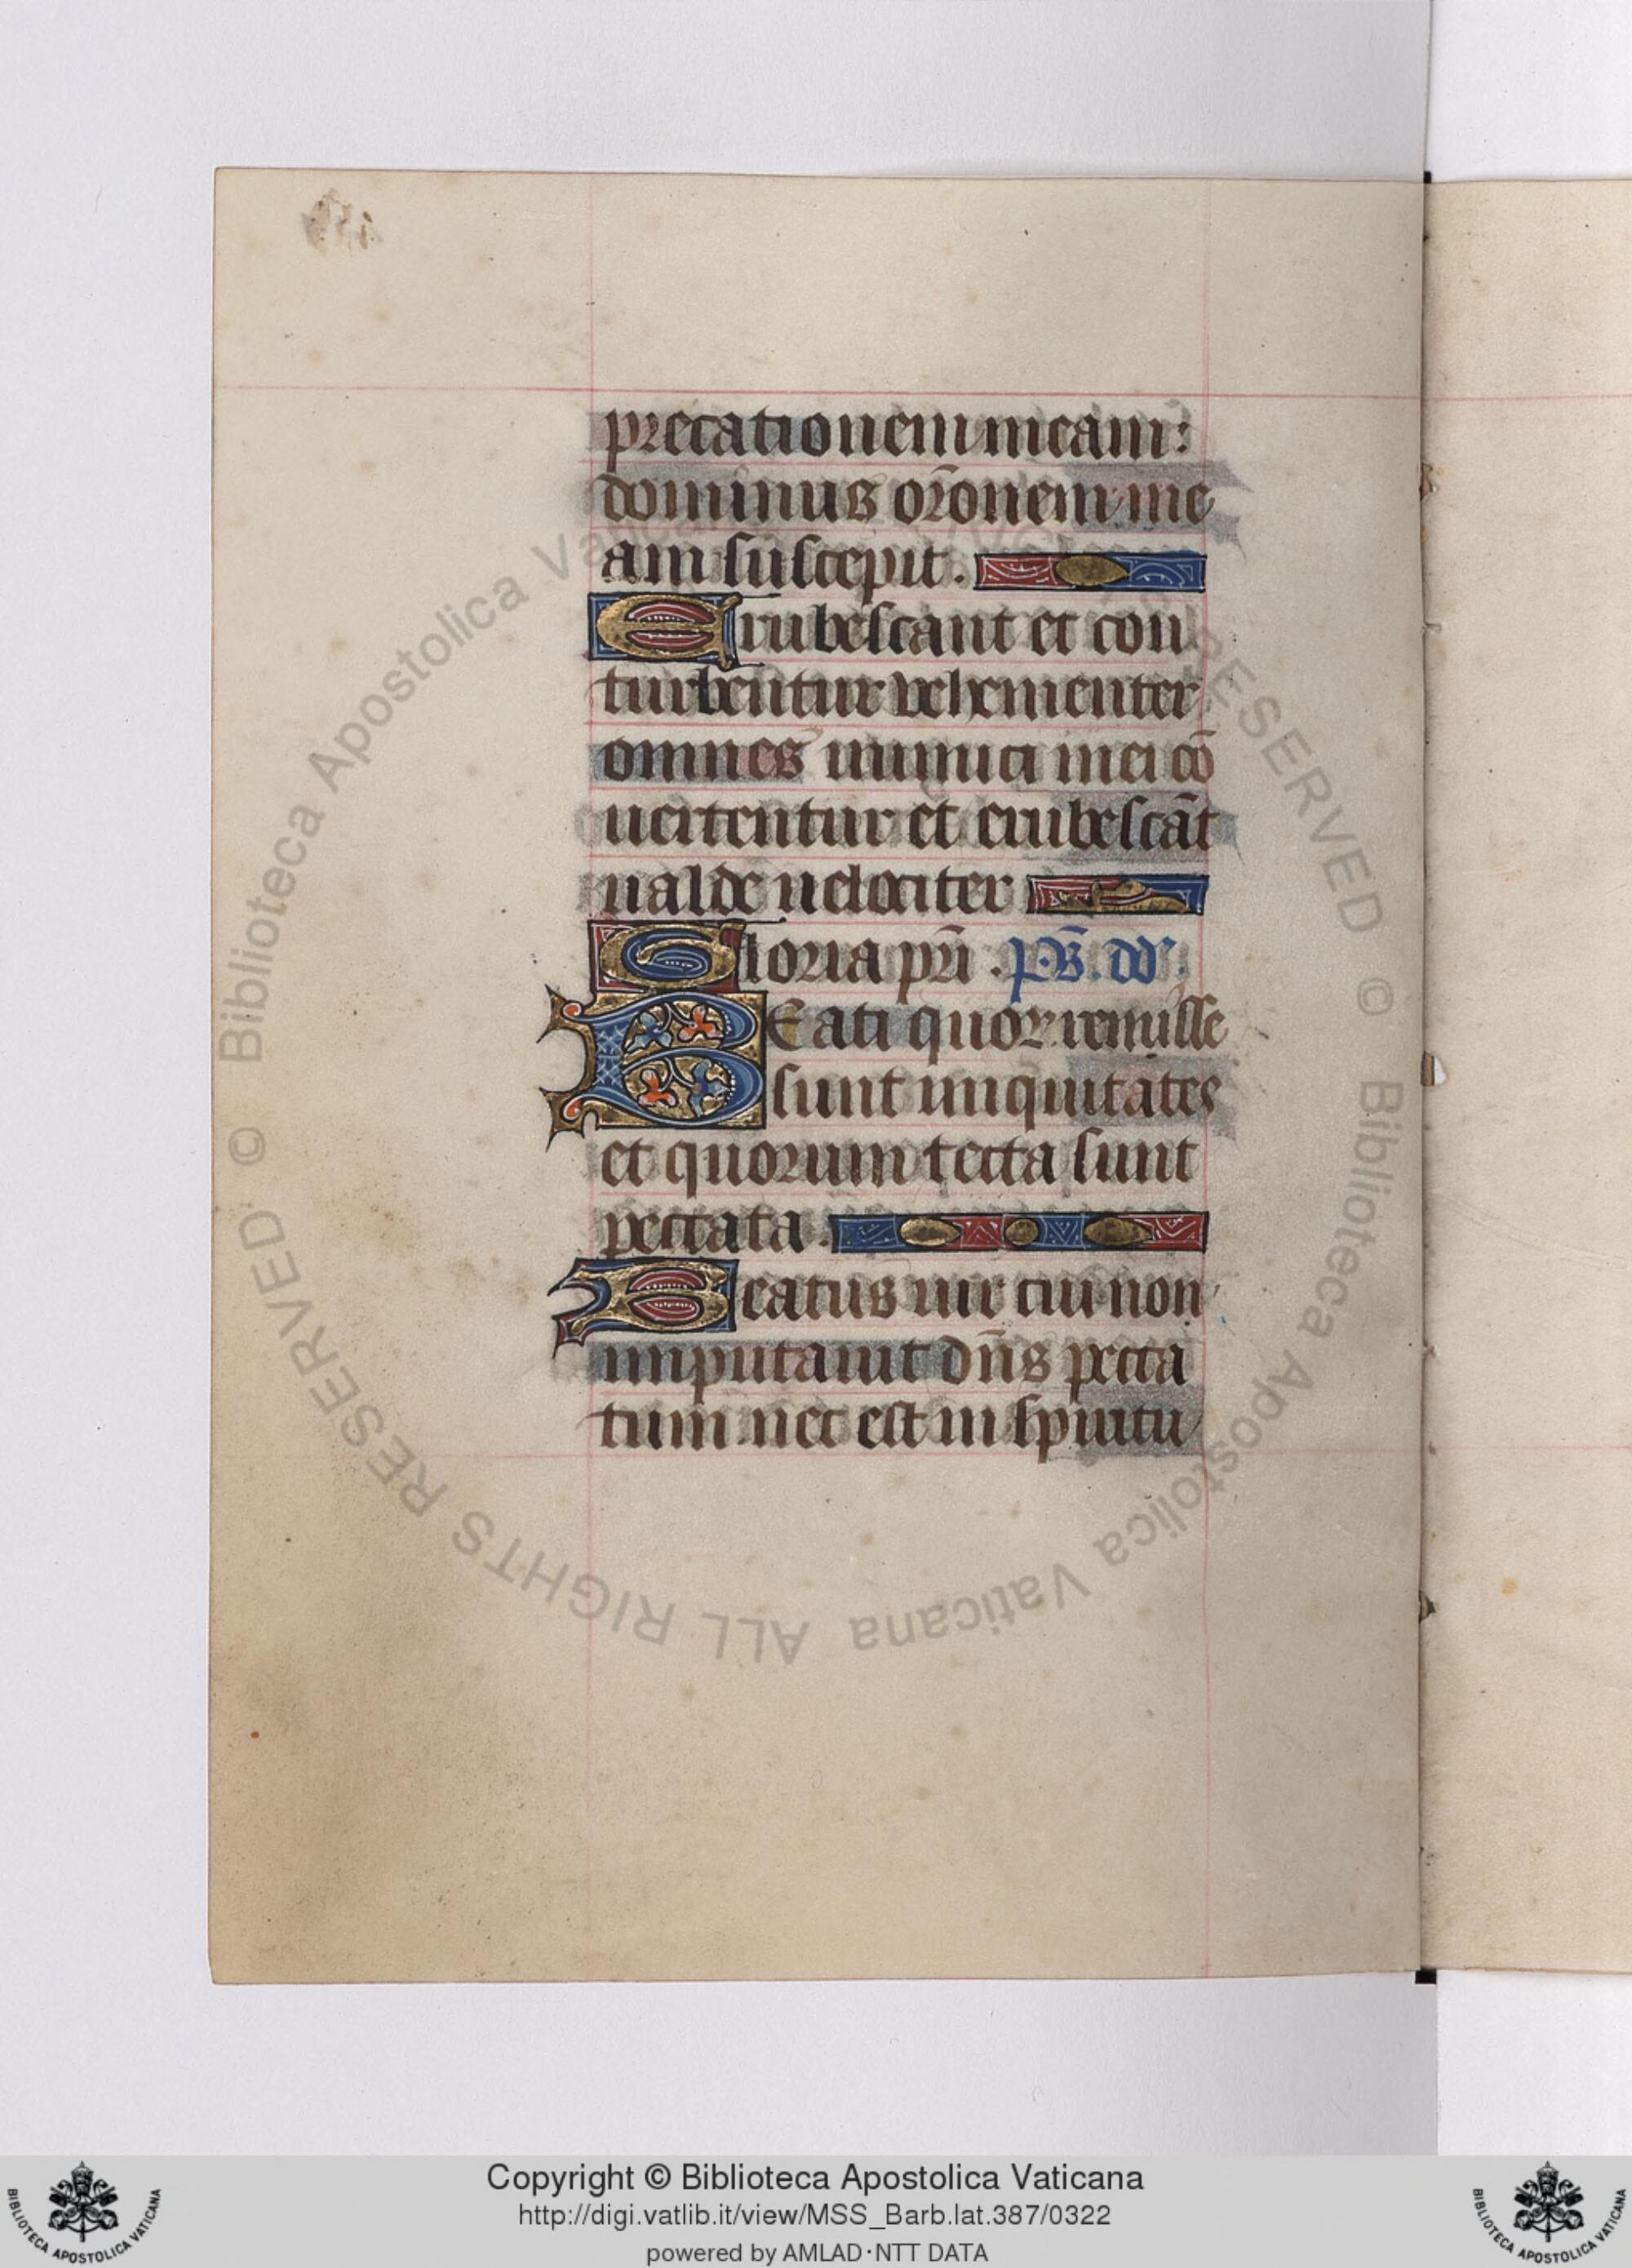 precationem meam:
dominus or̄onem me
am suscepit.
Erubescant et con
turbentur vehementer
omnes inimici mei cō
uertentur et erubescāt
ualde uelociter
Gloria pr̄i . p̄s̄. dd
BEati quoꝝ remisse
sunt iniquitates
et quorum tecta sunt
peccata.
Beatus uir cui non
imputauit dn̄s pecca
tum nec est in spiritu
© Biblioteca Apostolica Vaticana ALL RIGHTS RESERVED
Copyright © Biblioteca Apostolica Vaticana
http://digi.vatlib.it/view/MSS_Barb.lat.387/0322
powered by AMLAD·NTT DATA
BIBLIOTECA APOSTOLICA VATICANA
BIBLIOTECA APOSTOLICA VATICANA